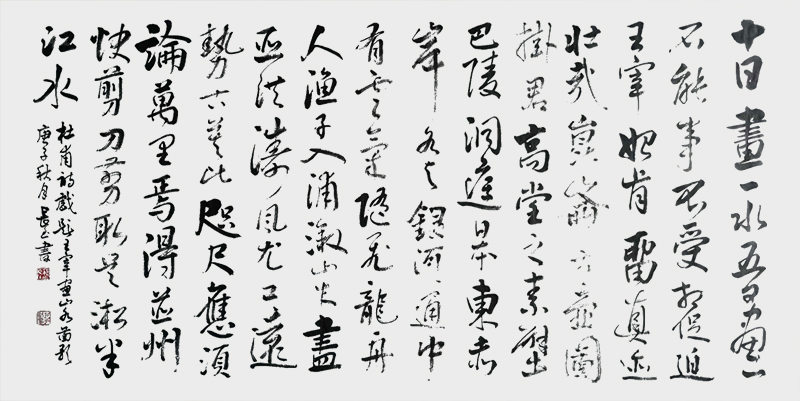 十日畫一水五日畫一
石能事不受相促迫
王宰始肯留真迹
壯哉崑崙方壺圖
掛君高堂之素壁
巴陵洞庭日本東赤
岸水與銀河通中
有雲氣隨飛龍舟
人漁子入浦溆山木盡
亞洪濤風尤工遠
勢古莫比咫尺應須
論萬里焉得並州
快剪刀剪取吳淞半
江水
杜甫詩戲題王宰畫山水圖歌
庚子秋月 書